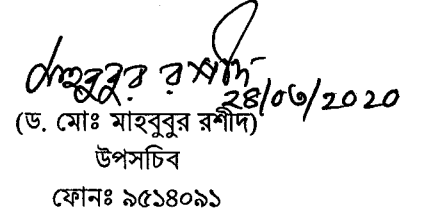 মাহবুবুর রশীদ
২৪/০৩/2020
(ড. মোঃ মাহবুবুর রশীদ)
উপসচিব
ফোনঃ ৯৫১৪০৯১